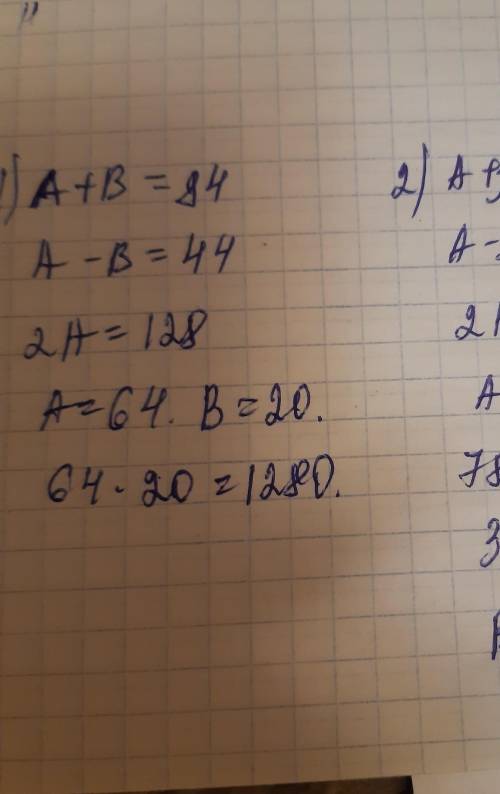 1) A+B=84
A-B=44
2A=128
A=64. B=20.
64·20=1280.
2) A+
A-
2
A
78
3